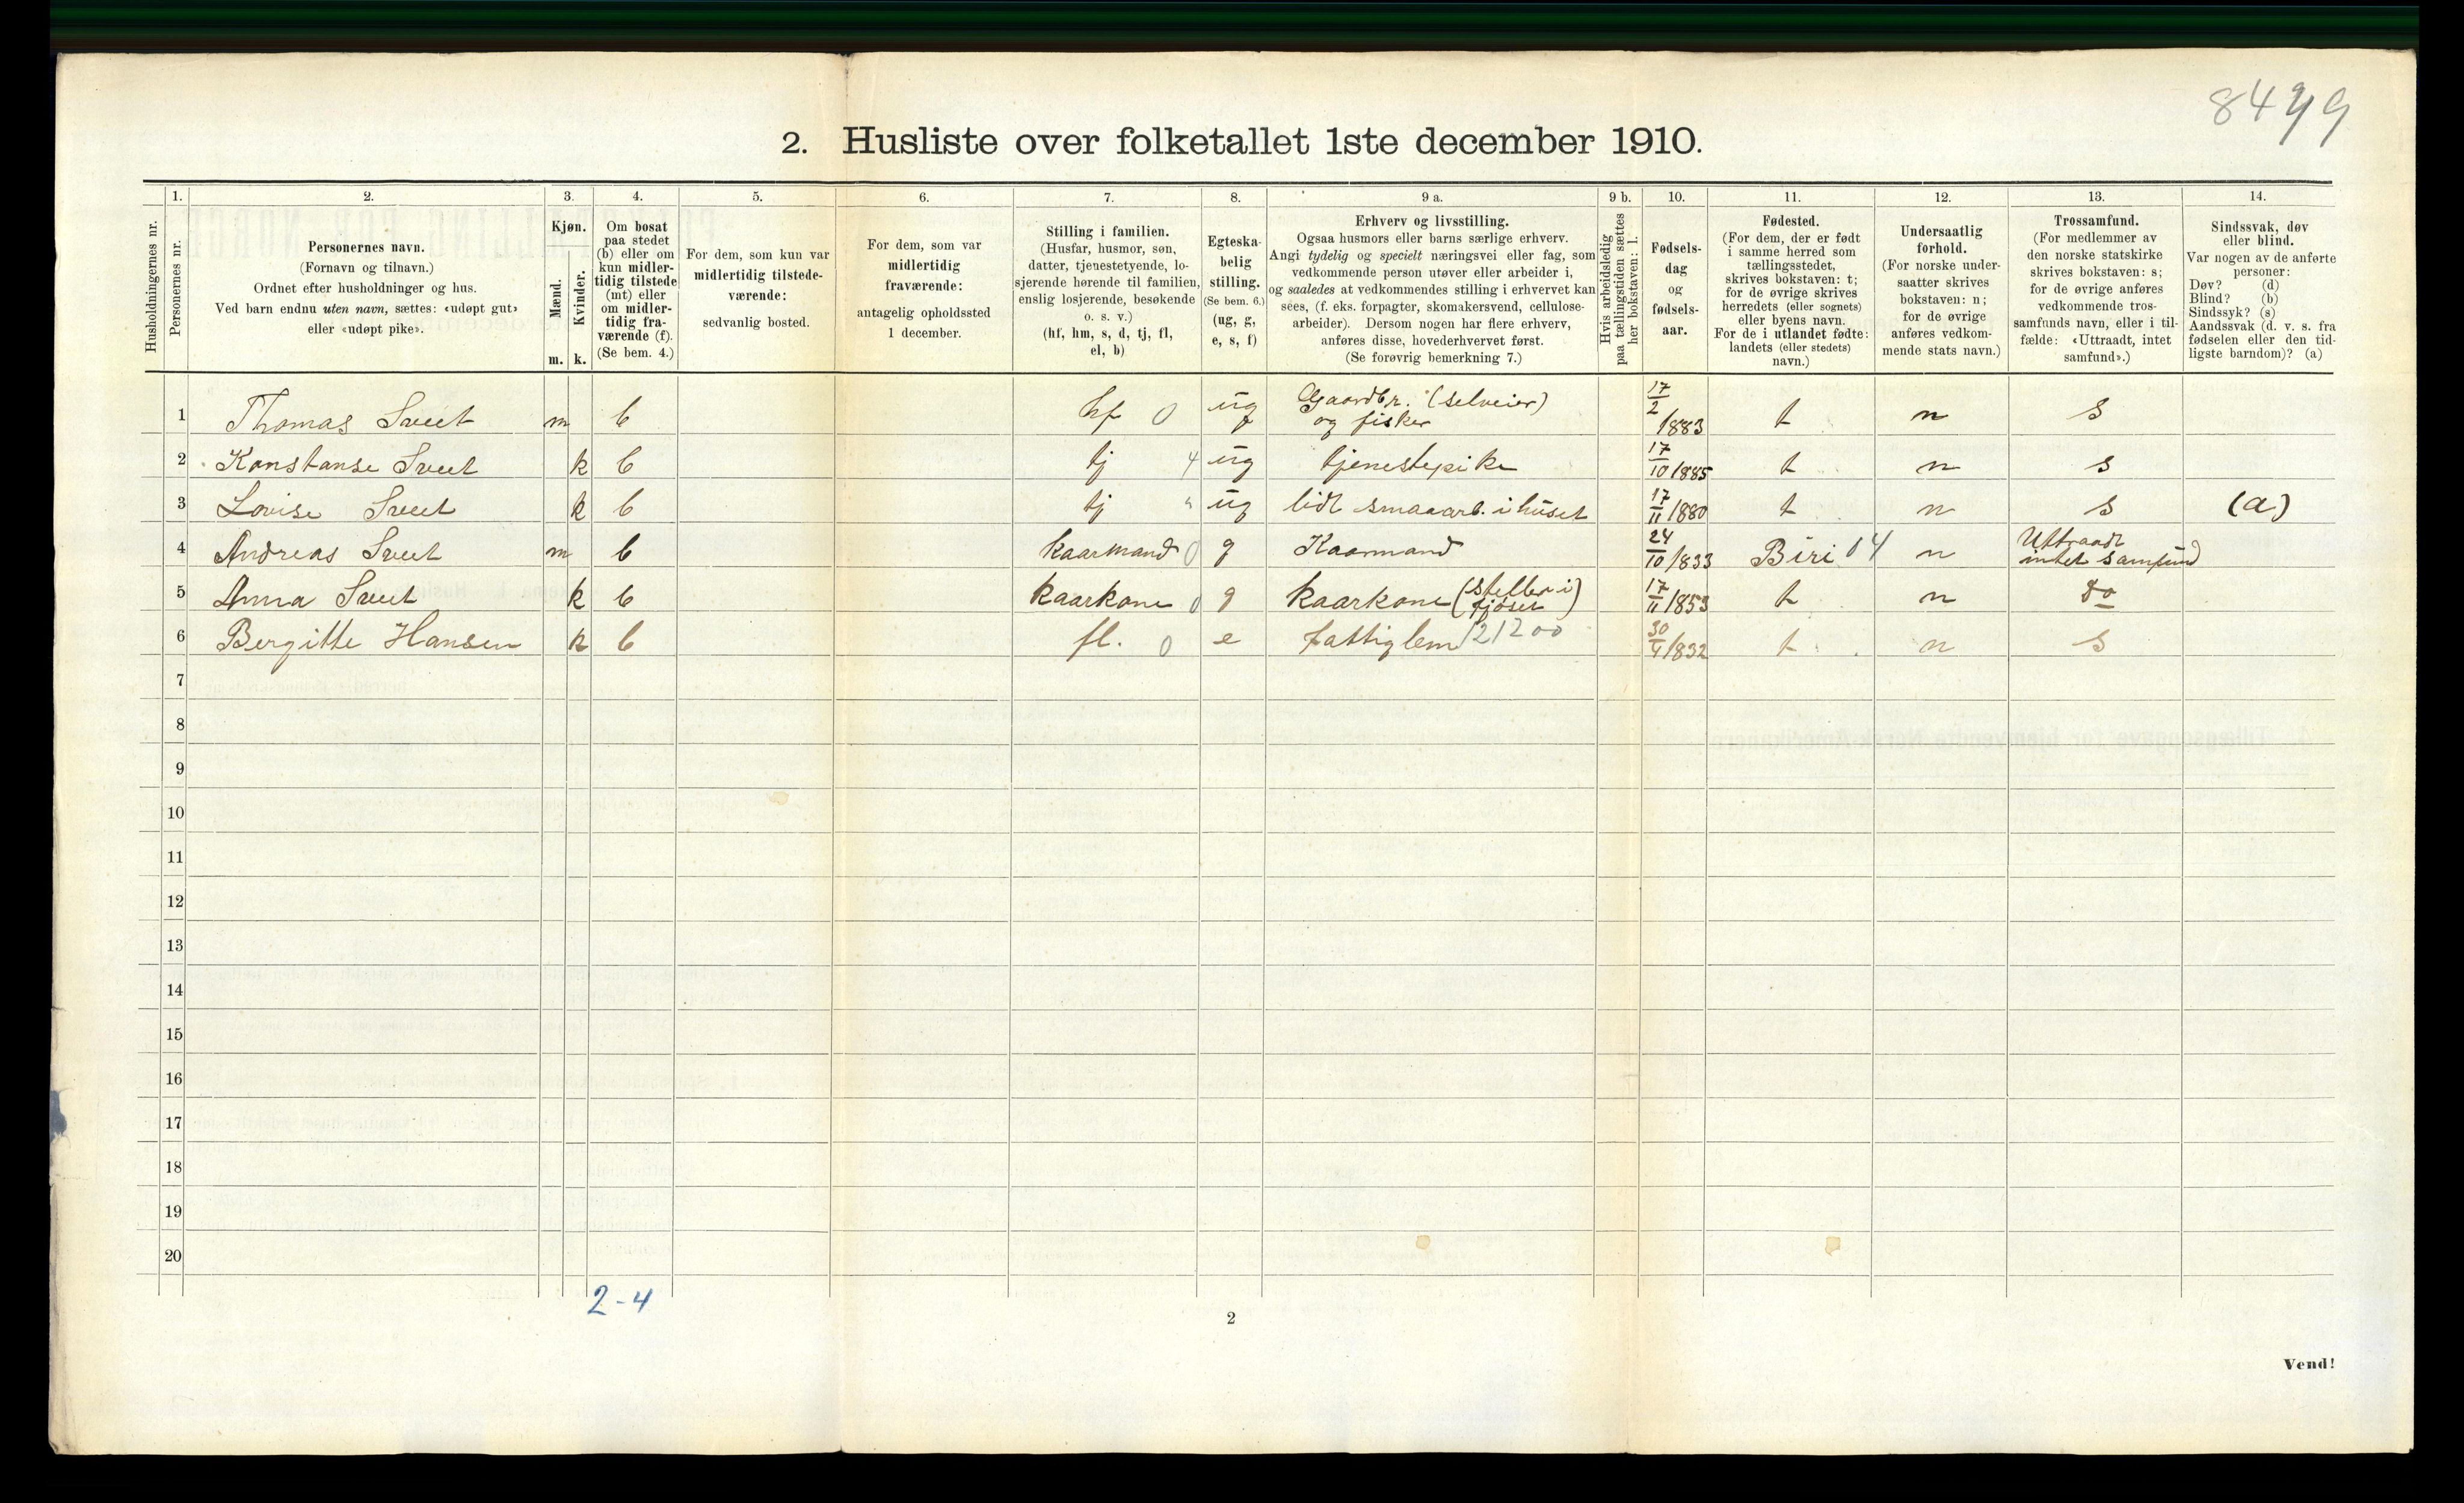 8499
2. Husliste over folketallet 1ste december 1910.
1. 2. 3. 4. 5. 6. 7. 8. 9 a. 9 b. 10. 11. 12. 13. 14.
Husholdningernes nr.
Personernes nr.
Personernes navn.
(Fornavn og tilnavn.)
Ordnet efter husholdninger og hus.
Ved barn endnu uten navn, sættes: «udøpt gut»
eller «udøpt pike».
Kjøn.
Mænd.
Kvinder.
m. k.
Om bosat
paa stedet
(b) eller om
kun midler-
tidig tilstede
(mt) eller
om midler-
tidig fra-
værende (f).
(Se bem. 4.)
For dem, som kun var
midlertidig tilstede-
værende:
sedvanlig bosted.
For dem, som var
midlertidig
fraværende:
antagelig opholdssted
1 december.
Stilling i familien.
(Husfar, husmor, søn,
datter, tjenestetyende, lo-
sjerende hørende til familien,
enslig losjerende, besøkende
o. s. v.)
(hf, hm, s, d, tj, fl,
el, b)
Egteska-
belig
stilling.
(Se bem. 6.)
(ug, g,
e, s, f)
Erhverv og livsstilling.
Ogsaa husmors eller barns særlige erhverv.
Angi tydelig og specielt næringsvei eller fag, som
vedkommende person utøver eller arbeider i,
og saaledes at vedkommendes stilling i erhvervet kan
sees, (f. eks. forpagter, skomakersvend, cellulose-
arbeider). Dersom nogen har flere erhverv,
anføres disse, hovederhvervet først.
(Se forøvrig bemerkning 7.)
Hvis arbeidsledig
paa tællingstiden sættes
her bokstaven: l.
Fødsels-
dag
og
fødsels-
aar.
Fødested.
(For dem, der er født
i samme herred som
tællingsstedet,
skrives bokstaven: t;
for de øvrige skrives
herredets (eller sognets)
eller byens navn.
For de i utlandet fødte:
landets (eller stedets)
navn.)
Undersaatlig
forhold.
(For norske under-
saatter skrives
bokstaven: n;
for de øvrige
anføres vedkom-
mende stats navn.)
Trossamfund.
(For medlemmer av
den norske statskirke
skrives bokstaven: s;
for de øvrige anføres
vedkommende tros-
samfunds navn, eller i til-
fælde: «Uttraadt, intet
samfund».)
Sindssvak, døv
eller blind.
Var nogen av de anførte
personer:
Døv? (d)
Blind? (b)
Sindssyk? (s)
Aandssvak (d. v. s. fra
fødselen eller den tid-
ligste barndom)? (a)
1 Thomas Sveet m b hf 0 ug Gaardbr. (selveier)
og fisker 17/2 /1883 t n s
2 Konstanse Sveet k b tj 4 ug tjenestepike 17/10 1885 t n s
3 Lovise Sveet k b tj " ug lidt smaaarb. i huset 17/11 1880 t n s (a)
4 Andreas Sveet m b kaarmand 0 g Kaarmand 24/10 /1833 Biri 04 n Uttraadt
intet samfund
5 Anna Sveet k b kaarkone 0 g kaarkone (steller i
fjøset) 17/11 /1853 t n do
6 Bergitte Hansen k b fl. 0 e fattiglem 121200 30/4 /1832 t n s
7
8
9
10
11
12
13
14
15
16
17
18
19
20
2-4
2
Vend!